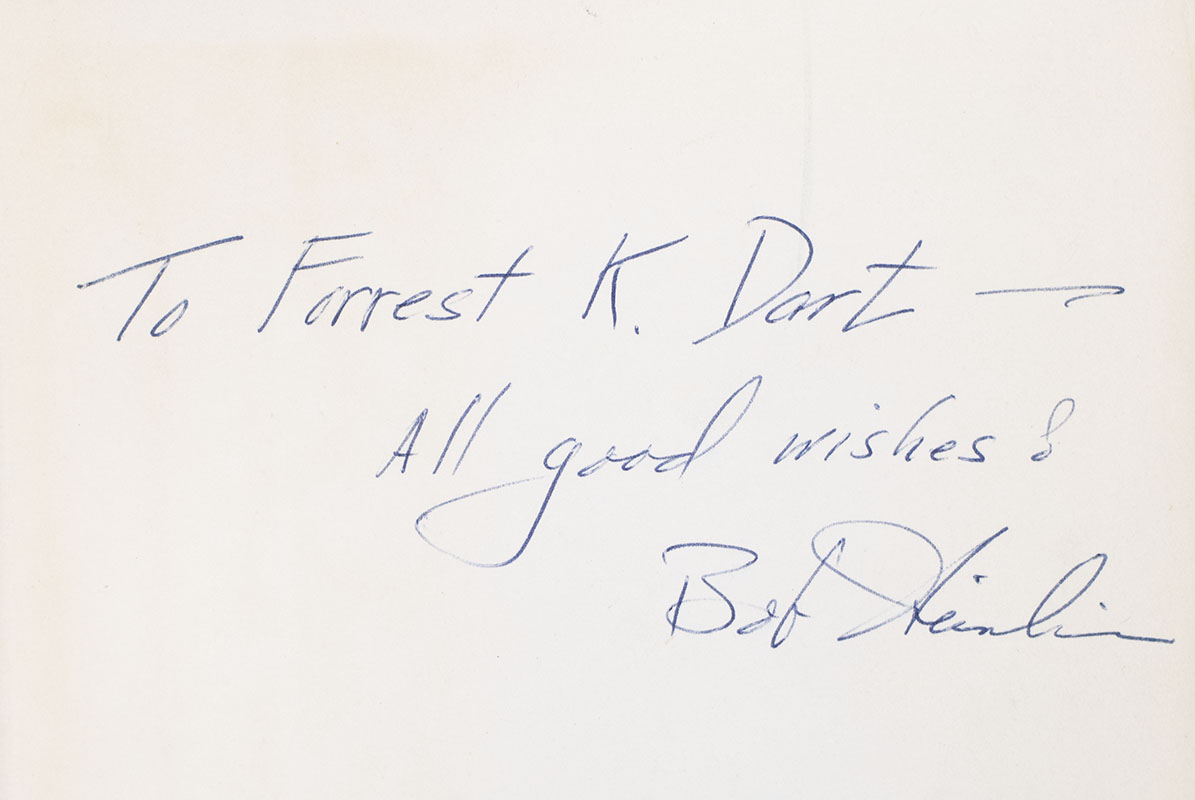 To Forrest K. Dart —
All good wishes!
Bob Heinlein